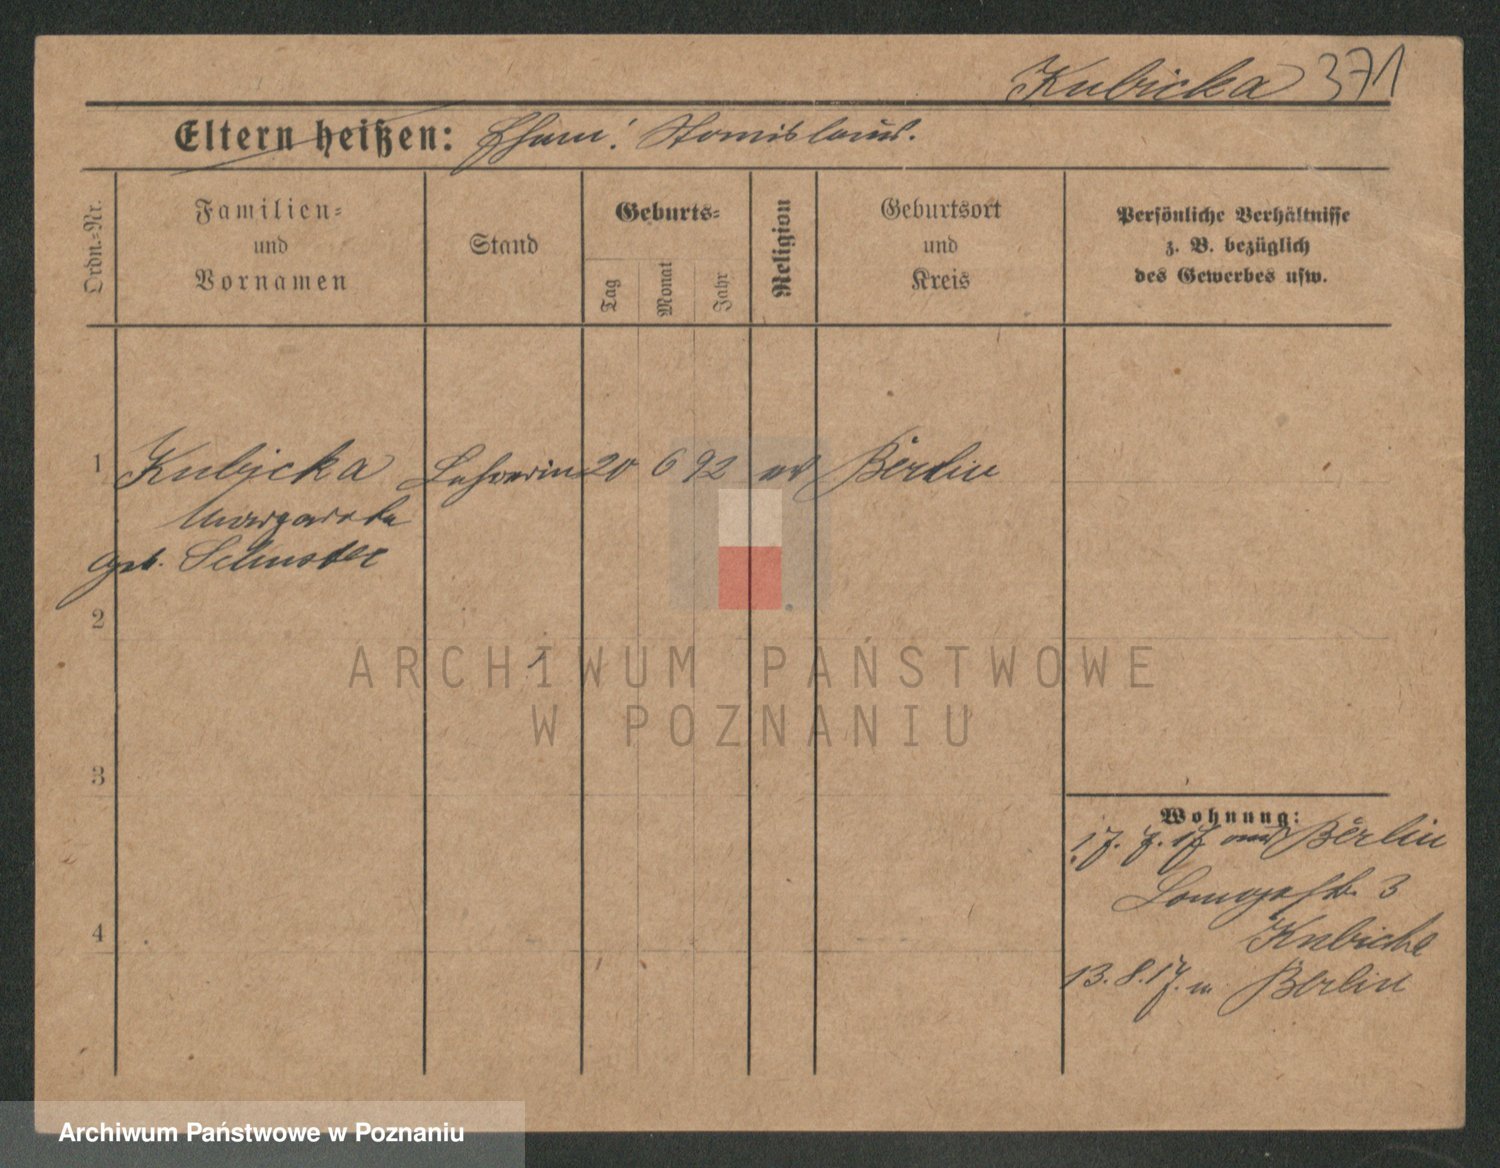 Kubicka 371
Eltern heißen: Ehem: Stanislaus.
Ordn.-Nr.
Familien-
und
Vornamen
Stand
Geburts-
Tag
Monat
Jahr
Religion
Geburtsort
und
Kreis
Persönliche Verhältnisse
z. B. bezüglich
des Gewerbes usw.
1 Kubicka 20 6 92 Berlin
Margarete
geb. Schuster
2
1
ARCHIWUM PAŃSTWOWE
W POZNANIU
3
Wohnung:
17. 7. 17 aus Berlin
3
Kubicka
4
13. 8. 17. n. Berlin
Archiwum Państwowe w Poznaniu